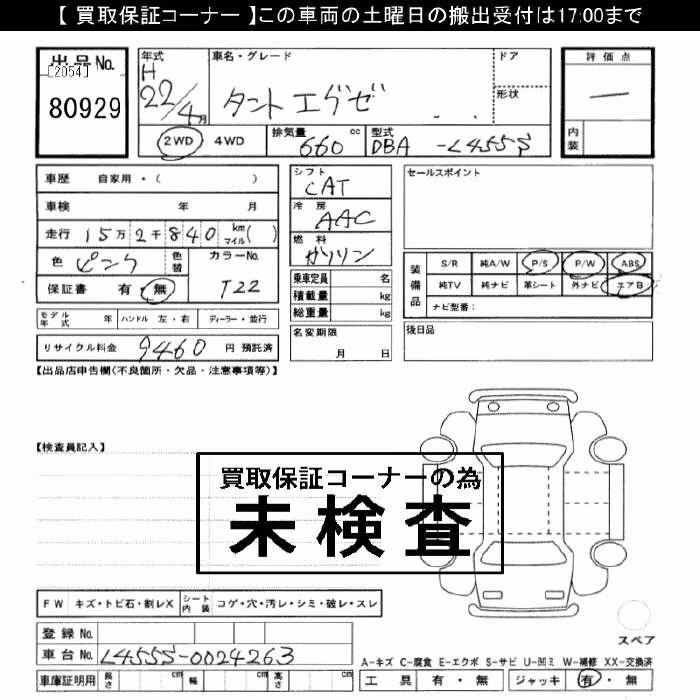 【 買取保証コーナー 】この車両の土曜日の搬出受付は17:00まで
出品No.
[2054]
80929
年式
H
22/4月
車名・グレード
タント エグゼ
ドア
形状
評価点
―
内装
2WD 4WD
排気量 660 cc
型式 DBA -L455S
車歴 自家用・( )
車検 年 月
走行 15万2千840 km マイル( )
色 ピンク 色替
カラーNo. T22
保証書 有・無
シフト
CAT
冷房
AAC
燃料
ガソリン
乗車定員 名
積載量 kg
総重量 kg
セールスポイント
装備品
S/R 純A/W P/S P/W ABS
純TV 純ナビ 革シート 外ナビ エアB
ナビ型番:
モデル年式 年 ハンドル 左・右 ディーラー・並行
リサイクル料金 9460 円 預託済
名変期限
月 日
後日品
【出品店申告欄(不良箇所・欠品・注意事項等)】
【検査員記入】
買取保証コーナーの為
未検査
FW キズ・トビ石・割レX シート内装 コゲ・穴・汚レ・シミ・破レ・スレ
スペア
登録No.
車台No. L455S-0024263
車庫証明用 長さ cm 幅 cm 高さ cm
A-キズ C-腐食 E-エクボ S-サビ U-凹ミ W-補修 XX-交換済
工具 有・無 ジャッキ 有・無